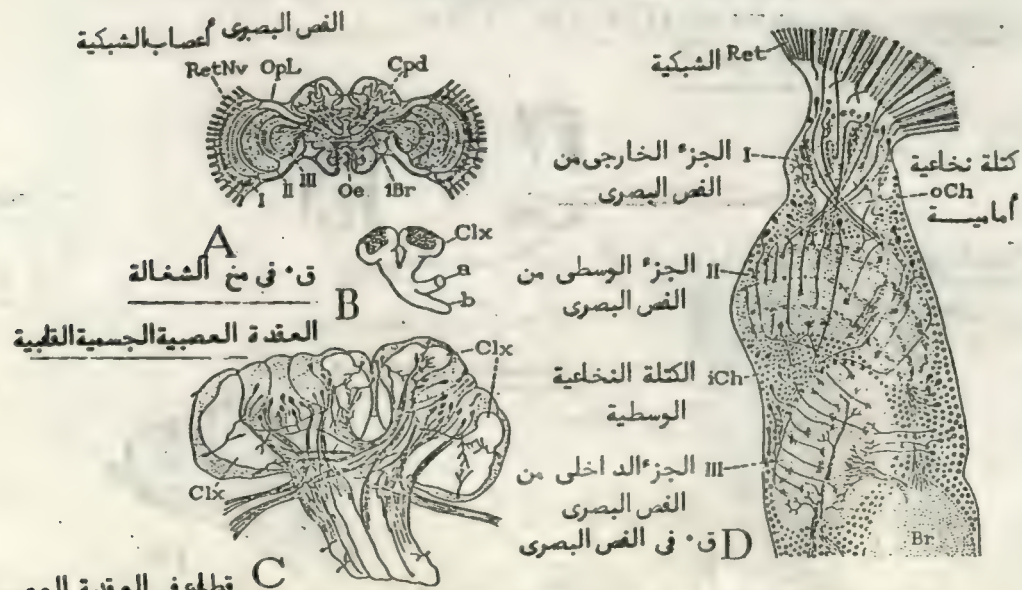 الفص البصرى أعصاب الشبكية
RetNv OpL Cpd
I II III Oe 1Br
A
ق. فى مخ الشغالة
B
Clx
a
b
العقدة العصبية الجسمية القلبية
Clx
Clx
C
الشبكية Ret
I الجزء الخارجى من
الفص البصرى
كتلة نخاعية
oCh
أمامية
II الجزء الوسطى من
الفص البصرى
iCh الكتلة النخاعية
الوسطية
III الجزء الداخلى من
الفص البصرى
Br
D ق. فى الفص البصرى